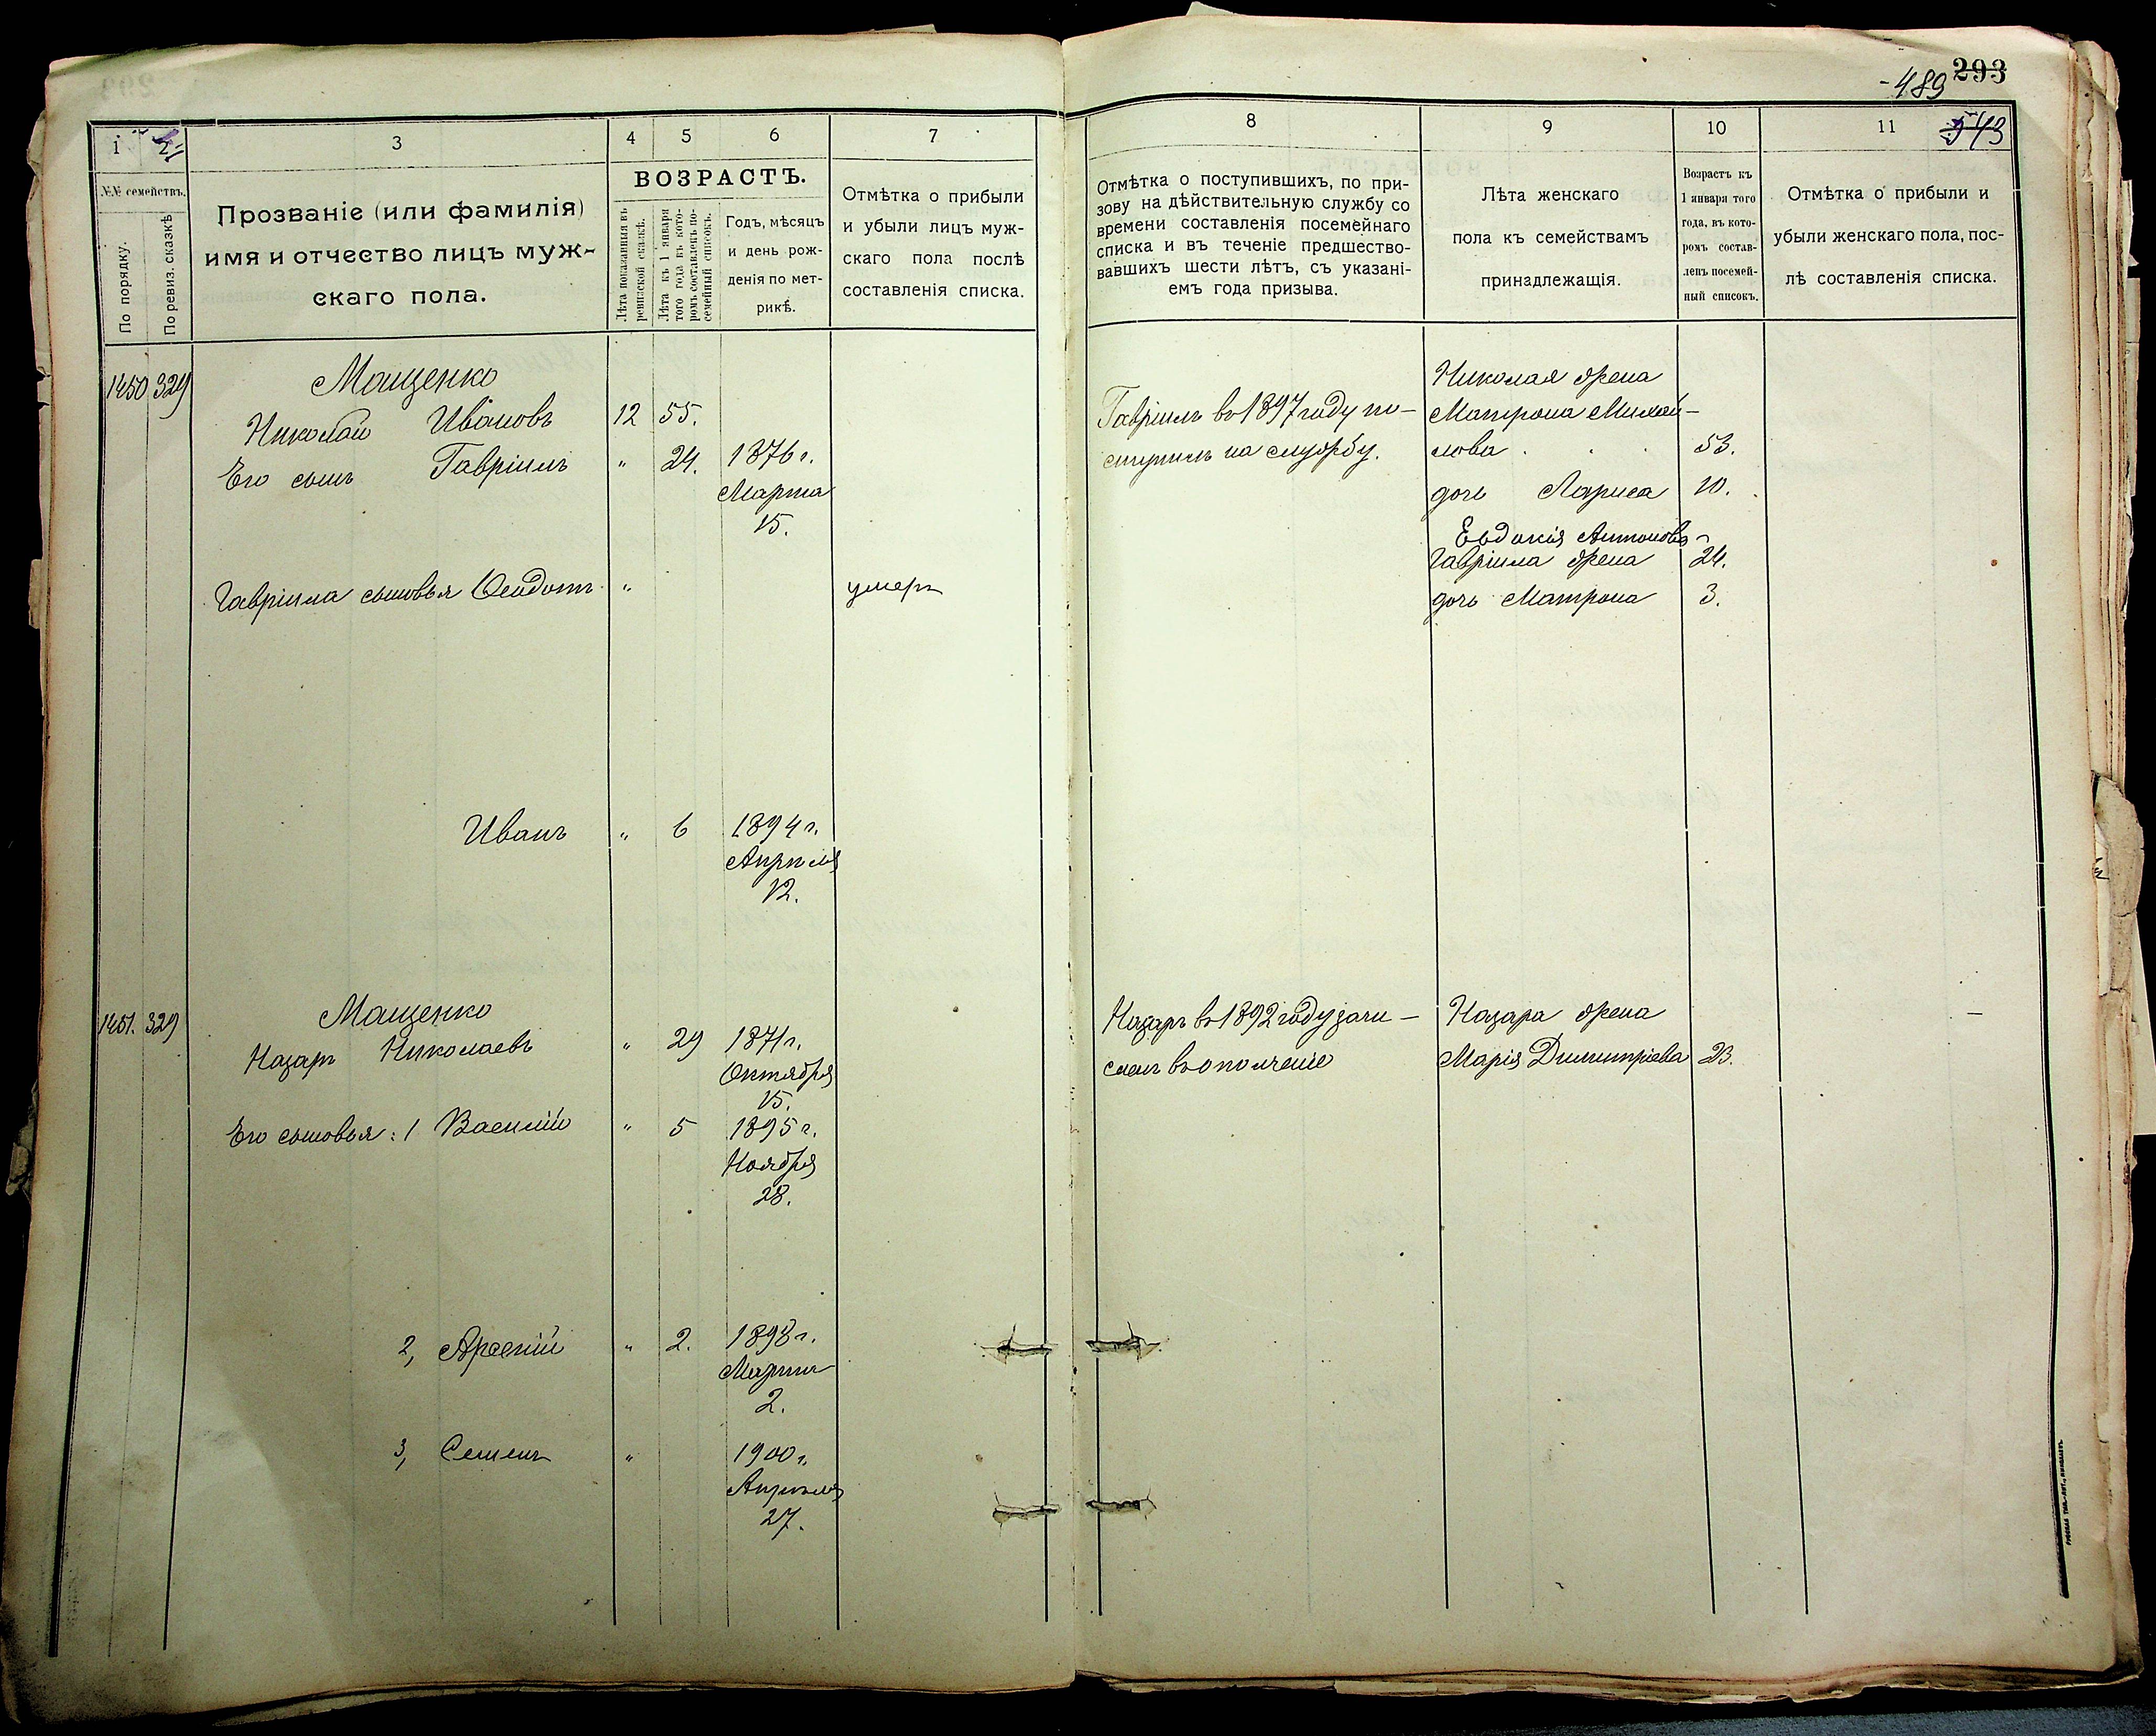 293
- 489
543
1
2
3
4
5
6
7
№№ семействъ.
По порядку.
По ревиз. сказкѣ
Прозваніе (или фамилія)
имя и отчество лицъ муж-
скаго пола.
ВОЗРАСТЪ.
Лѣта показанныя въ
ревизской сказкѣ.
Лѣта къ 1 января
того года въ кото-
ромъ составленъ по-
семейный списокъ.
Годъ, мѣсяцъ
и день рож-
денія по мет-
рикѣ.
Отмѣтка о прибыли
и убыли лицъ муж-
скаго пола послѣ
составленія списка.
1450 329 Мащенко
Николай Ивановъ 12 55.
Его сынъ Гавріилъ " 24. 1876 г.
Марта
15.
Гавріила сыновья Феодотъ " умеръ
Иванъ " 6 1894 г.
Апрѣля
12.
1451. 329 Мащенко
Назаръ Николаевъ " 29 1871 г.
Октября
15.
Его сыновья: 1 Василій " 5 1895 г.
Ноября
28.
2, Арсеній " 2. 1898 г.
Марта
2.
3, Семенъ " 1900 г.
Апрѣля
27.
8
9
10
11
Отмѣтка о поступившихъ, по при-
зову на дѣйствительную службу со
времени составленія посемейнаго
списка и въ теченіе предшество-
вавшихъ шести лѣтъ, съ указані-
емъ года призыва.
Лѣта женскаго
пола къ семействамъ
принадлежащія.
Возрастъ къ
1 января того
года, въ кото-
ромъ состав-
ленъ посемей-
ный списокъ.
Отмѣтка о прибыли и
убыли женскаго пола, пос-
лѣ составленія списка.
Николая жена
Гавріилъ въ 1897 году по- Матрона Михай-
ступилъ на службу. лова 53.
дочь Лариса 10.
Евдокія Антонова
Гавріила жена 24.
дочь Матрона 3.
Назаръ въ 1892 году зачи- Назара жена
сленъ въ ополченіе Марія Димитріева 23.